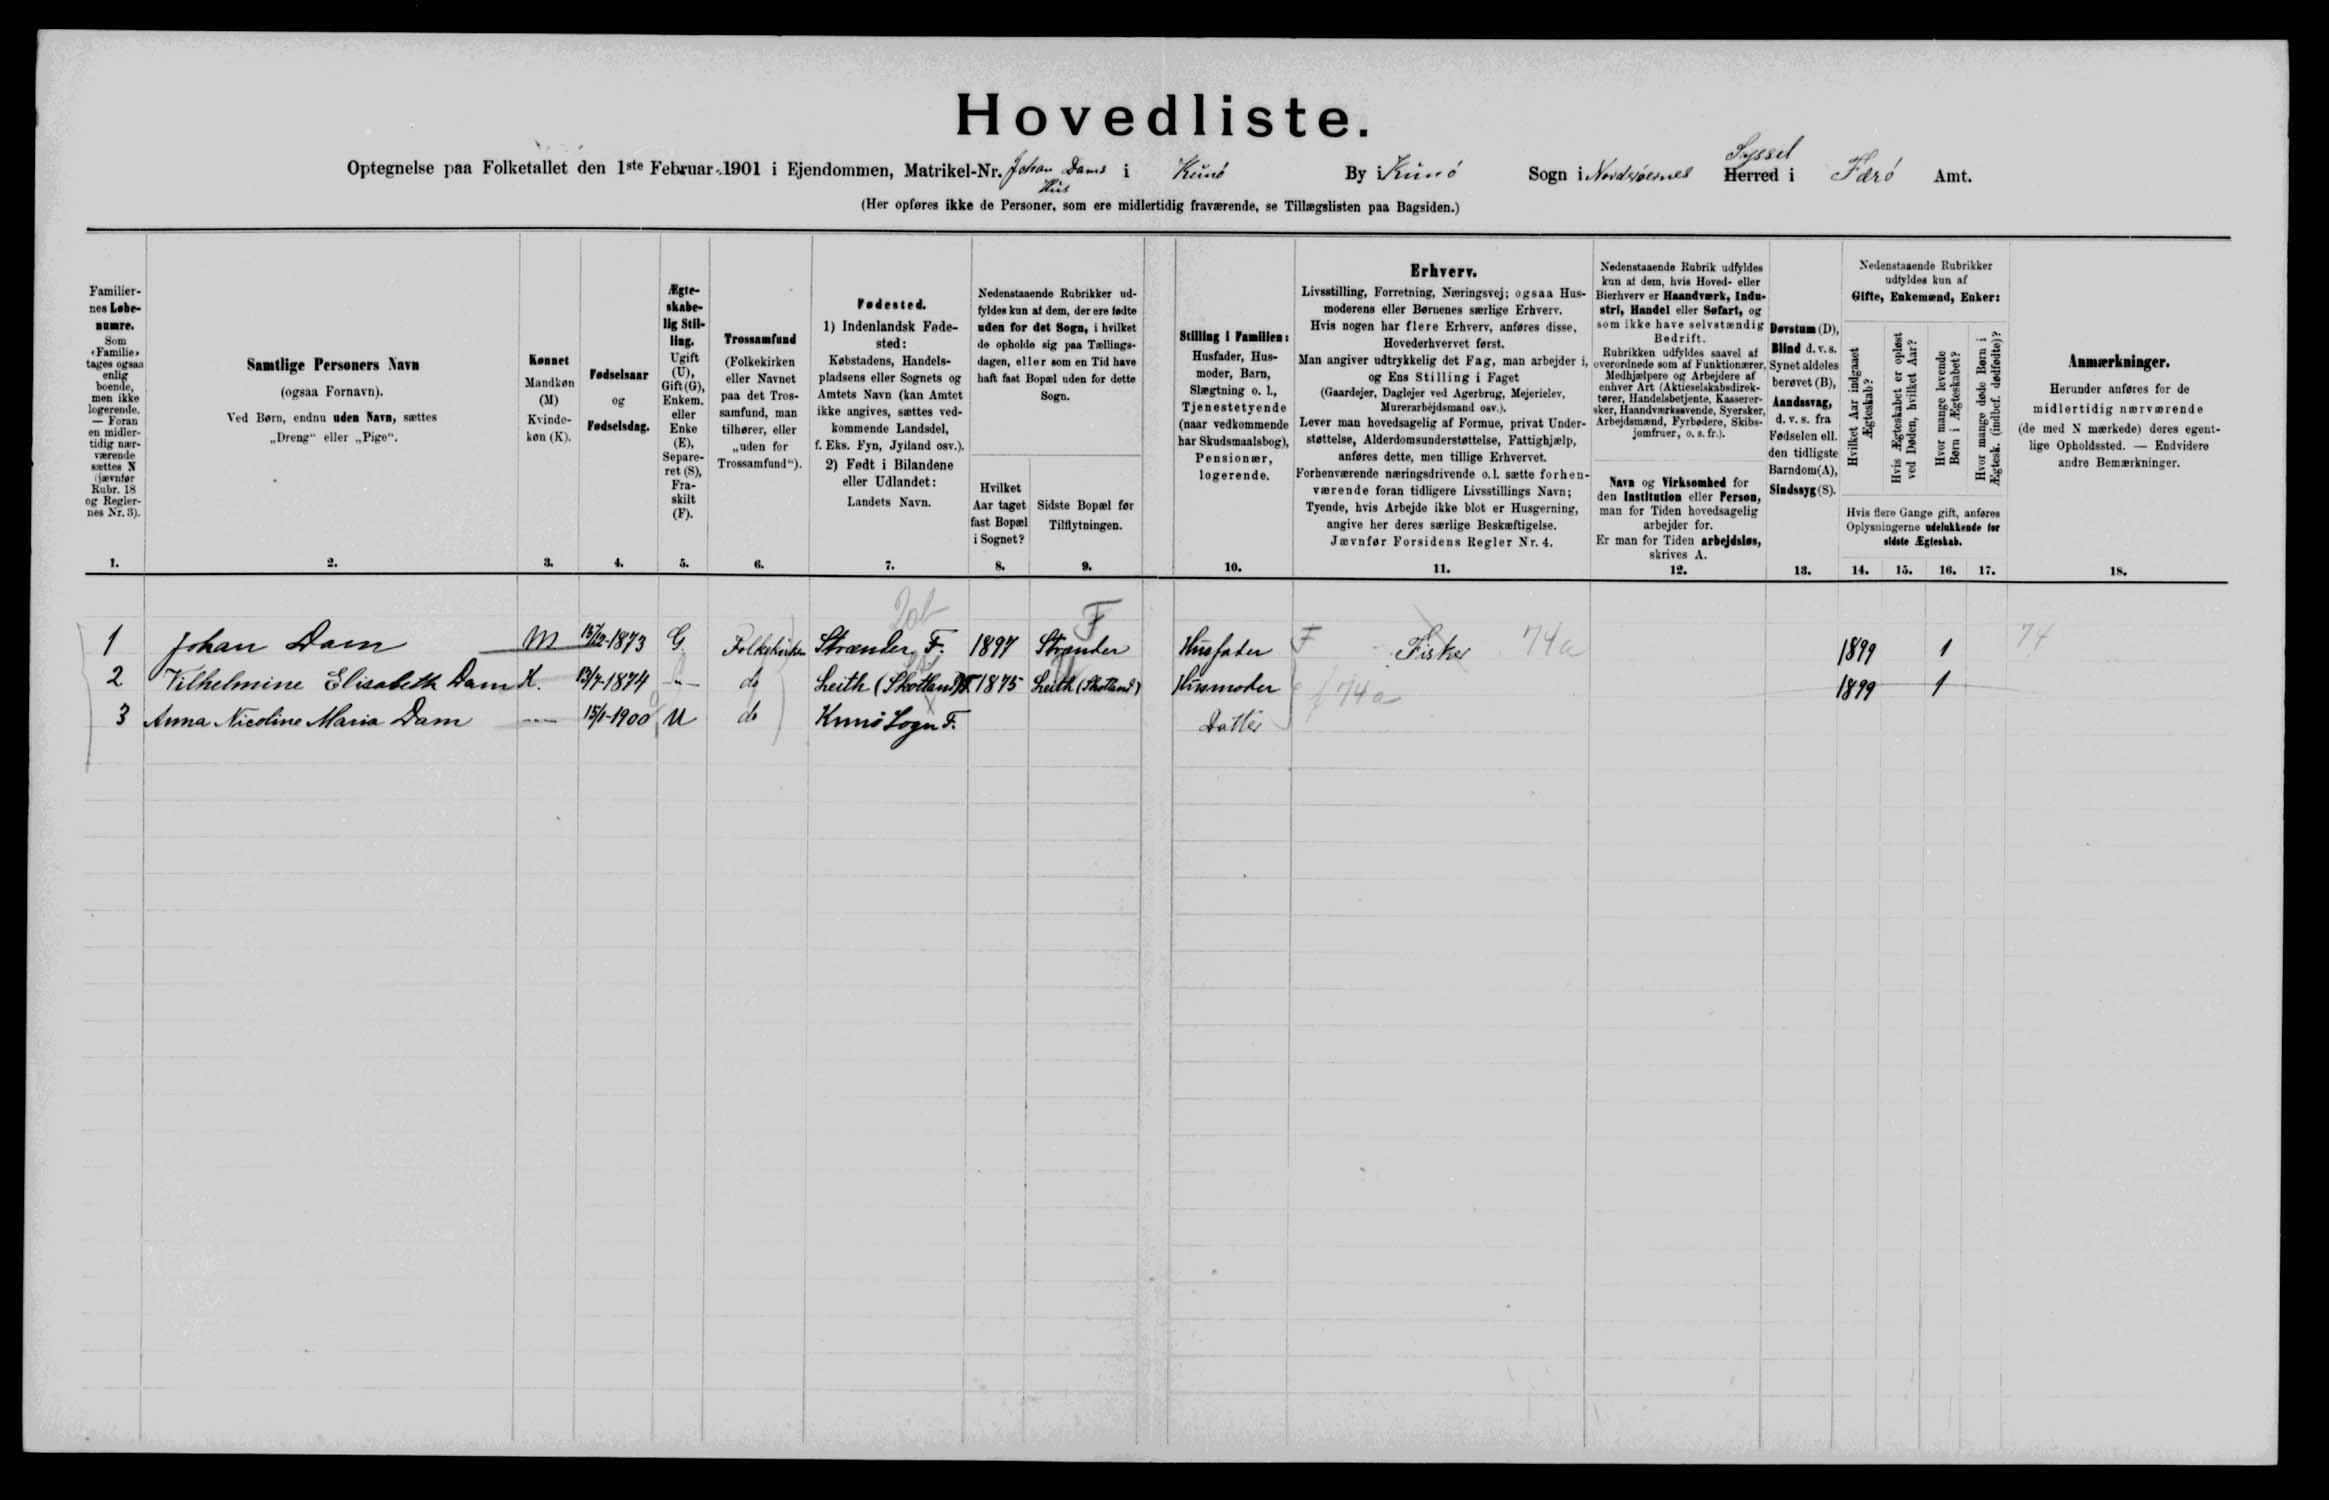 Hovedliste.
Syssel
Optegnelse paa Folketallet den 1ste Februar 1901 i Ejendommen, Matrikel-Nr. Johan Dams i Kunø By i Kunø Sogn i Norderøernes Herred i Færø Amt.
Hus
(Her opføres ikke de Personer, som ere midlertidig fraværende, se Tillægslisten paa Bagsiden.)
Familier-
nes Løbe-
numre.
Som
«Familie»
tages ogsaa
enlig
boende,
men ikke
logerende.
— Foran
en midler-
tidig nær-
værende
sættes N
(jævnfør
Rubr. 18
og Regler-
nes Nr. 3).
1.
Samtlige Personers Navn
(ogsaa Fornavn).
Ved Børn, endnu uden Navn, sættes
„Dreng“ eller „Pige“.
2.
Kønnet
Mandkøn
(M)
Kvinde-
køn (K).
3.
Fødselsaar
og
Fødselsdag.
4.
Ægte-
skabe-
lig Stil-
ling.
Ugift
(U),
Gift (G),
Enkem.
eller
Enke
(E),
Separe-
ret (S),
Fra-
skilt
(F).
5.
Trossamfund
(Folkekirken
eller Navnet
paa det Tros-
samfund, man
tilhører, eller
„uden for
Trossamfund“).
6.
Fødested.
1) Indenlandsk Føde-
sted:
Købstadens, Handels-
pladsens eller Sognets og
Amtets Navn (kan Amtet
ikke angives, sættes ved-
kommende Landsdel,
f. Eks. Fyn, Jylland osv.).
2) Født i Bilandene
eller Udlandet:
Landets Navn.
7.
Nedenstaaende Rubrikker ud-
fyldes kun af dem, der ere fødte
uden for det Sogn, i hvilket
de opholde sig paa Tællings-
dagen, eller som en Tid have
haft fast Bopæl uden for dette
Sogn.
Hvilket
Aar taget
fast Bopæl
i Sognet?
8.
Sidste Bopæl før
Tilflytningen.
9.
Stilling i Familien:
Husfader, Hus-
moder, Barn,
Slægtning o. l.,
Tjenestetyende
(naar vedkommende
har Skudsmaalsbog),
Pensionær,
logerende.
10.
Erhverv.
Livsstilling, Forretning, Næringsvej; ogsaa Hus-
moderens eller Børnenes særlige Erhverv.
Hvis nogen har flere Erhverv, anføres disse,
Hovederhvervet først.
Man angiver udtrykkelig det Fag, man arbejder i,
og Ens Stilling i Faget
(Gaardejer, Daglejer ved Agerbrug, Mejerielev,
Murerarbejdsmand osv.).
Lever man hovedsagelig af Formue, privat Under-
støttelse, Alderdomsunderstøttelse, Fattighjælp,
anføres dette, men tillige Erhvervet.
Forhenværende næringsdrivende o. l. sætte forhen-
værende foran tidligere Livsstillings Navn;
Tyende, hvis Arbejde ikke blot er Husgerning,
angive her deres særlige Beskæftigelse.
Jævnfør Forsidens Regler Nr. 4.
11.
Nedenstaaende Rubrik udfyldes
kun af dem, hvis Hoved- eller
Bierhverv er Haandværk, Indu-
stri, Handel eller Søfart, og
som ikke have selvstændig
Bedrift.
Rubrikken udfyldes saavel af
overordnede som af Funktionærer,
Medhjælpere og Arbejdere af
enhver Art (Aktieselskabsdirek-
tører, Handelsbetjente, Kasserer-
sker, Haandværkssvende, Syersker,
Arbejdsmænd, Fyrbødere, Skibs-
jomfruer, o. s. fr.).
Navn og Virksomhed for
den Institution eller Person,
man for Tiden hovedsagelig
arbejder for.
Er man for Tiden arbejdsløs,
skrives A.
12.
Døvstum (D),
Blind d. v. s.
Synet aldeles
berøvet (B),
Aandssvag,
d. v. s. fra
Fødselen ell.
den tidligste
Barndom(A),
Sindssyg (S).
13.
Nedenstaaende Rubrikker
udfyldes kun af
Gifte, Enkemænd, Enker:
Hvilket Aar indgaaet
Ægteskab?
Hvis Ægteskabet er opløst
ved Døden, hvilket Aar?
Hvor mange levende
Børn i Ægteskabet?
Hvor mange døde Børn i
Ægtesk. (indbef. dødfødte)?
Hvis flere Gange gift, anføres
Oplysningerne udelukkende for
sidste Ægteskab.
14. 15. 16. 17.
Anmærkninger.
Herunder anføres for de
midlertidig nærværende
(de med N mærkede) deres egent-
lige Opholdssted. — Endvidere
andre Bemærkninger.
18.
F
1 Johan Dam M 15/12-1873 G Folkekirken Strænder F. 1897 Strænder Husfader F Fisker 74a 1899 1 74
2 Vilhelmine Elisabeth Dam K. 13/7-1874 -„- do Leith (Skotland) 1875 Leith (Skotland) Husmoder 74a 1899 1
3 Anna Nicoline Maria Dam -„- 15/1-1900 U do Kunø Sogn F. Datter